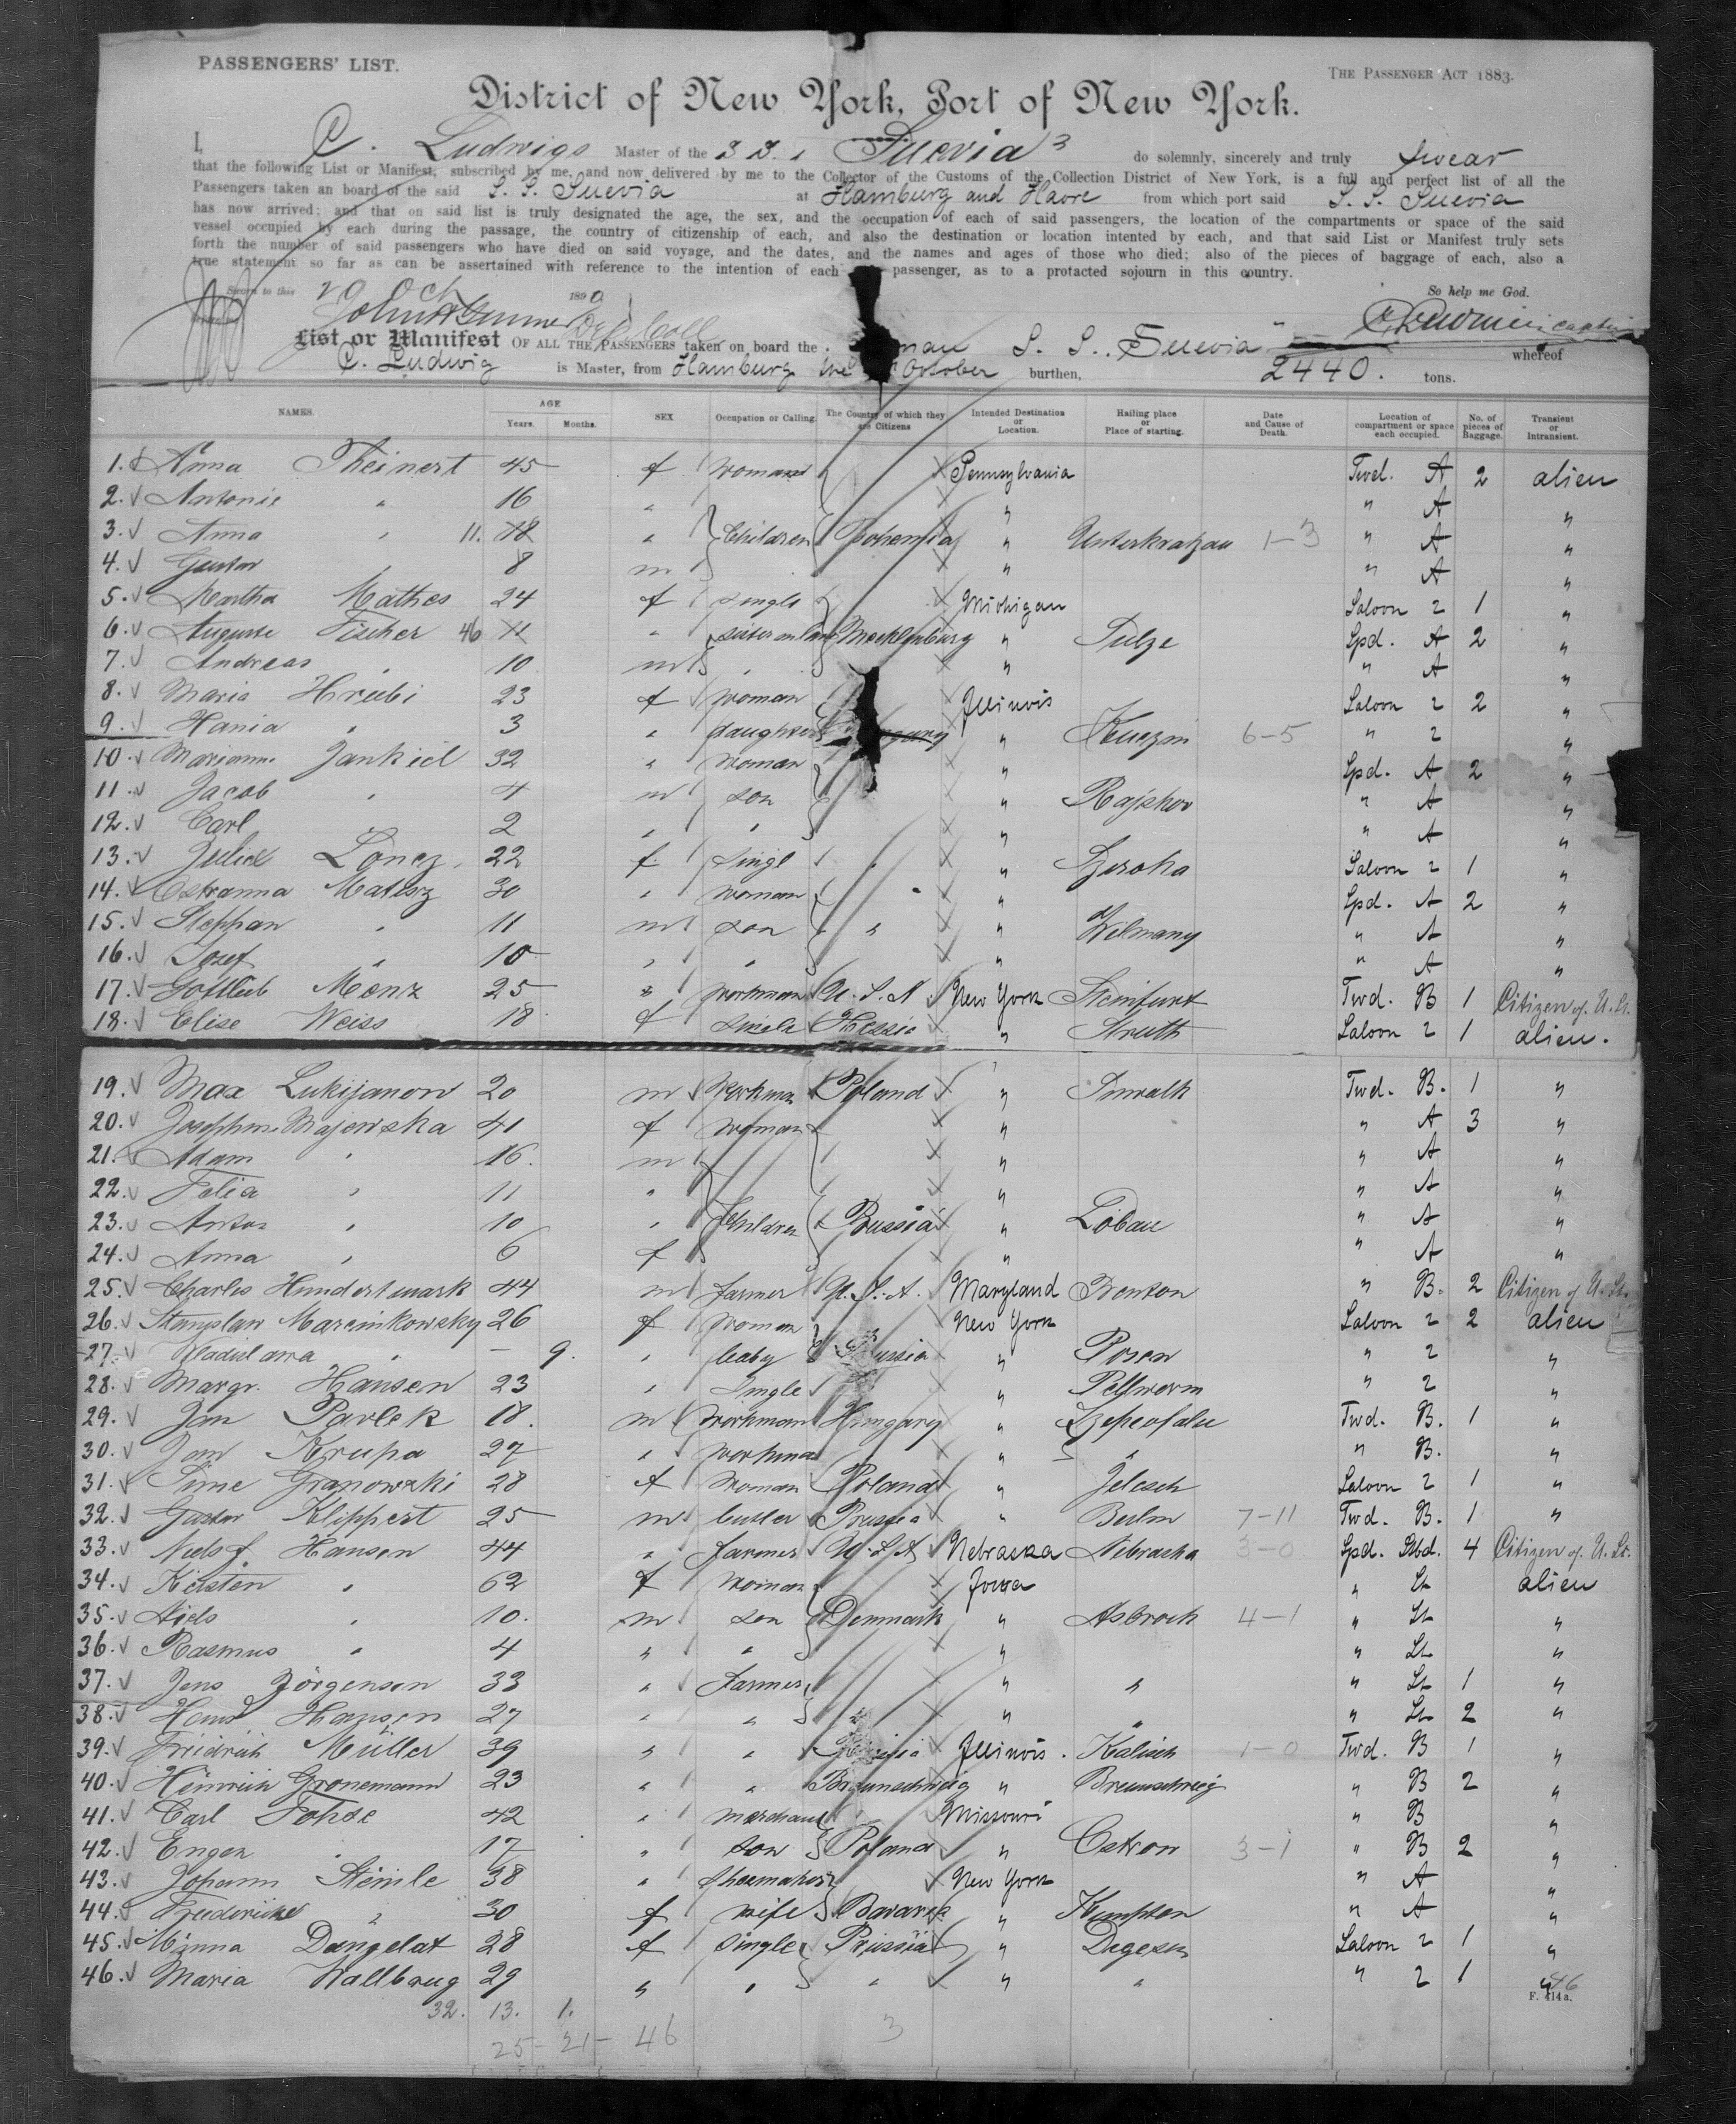 PASSENGERS' LIST.
THE PASSENGER ACT 1883.
District of New York, Port of New York.
I, C. Ludwigs Master of the S.S. Suevia do solemnly, sincerely and truly swear
that the following List or Manifest, subscribed by me, and now delivered by me to the Collector of the Customs of the Collection District of New York, is a full and perfect list of all the
Passengers taken an board of the said S. S. Suevia at Hamburg and Havre from which port said S. S. Suevia
has now arrived; and that on said list is truly designated the age, the sex, and the occupation of each of said passengers, the location of the compartments or space of the said
vessel occupied by each during the passage, the country of citizenship of each, and also the destination or location intented by each, and that said List or Manifest truly sets
forth the number of said passengers who have died on said voyage, and the dates, and the names and ages of those who died; also of the pieces of baggage of each, also a
true statement so far as can be assertained with reference to the intention of each passenger, as to a protacted sojourn in this country.
Sworn to this 20 Oct 1890
So help me God.
List or Manifest OF ALL THE PASSENGERS taken on board the S. S. Suevia whereof
C. Ludwig is Master, from Hamburg the October burthen, 2440. tons.
NAMES. AGE Years. Months. SEX Occupation or Calling. The Country of which they are Citizens Intended Destination or Location. Hailing place or Place of starting. Date and Cause of Death. Location of compartment or space each occupied. No. of pieces of Baggage. Transient or Intransient.
1. Anna Theinert 45 f woman Pennsylvania Twd. A 2 alien
2. Antonie " 16 " " " A "
3. Anna " 11. 18 " Children Bohemia " Unterkratzau 1-3 " A "
4. Gustav " 8 m " " A "
5. Martha Mathes 24 f single Michigan Saloon 2 1 "
6. Auguste Fischer 46 11 " Mecklenburg " Sulze Spd. A 2 "
7. Andreas " 10 m " " " A "
8. Maria Hrubi 23 f woman Illinois Saloon 2 2 "
9. Hania " 3 " daughter " 6-5 " 2 "
10. Marianne Jankiel 32 " woman " Spd. A 2 "
11. Jacob " 4 m son " Rajskov " A "
12. Carl 2 " " " " A "
13. Julie Loncz 22 f. Singl " " Saloon 2 1 "
14. Matisz 30 " woman " " Spd. A 2 "
15. Stephan " 11 m son " " " A "
16. Josef " 10 " " " " A "
17. Gottlieb Menz 25 " workman U.S.A. New York Steinfurt Twd. B 1 Citizen of U. St.
18. Elise Weiss 18 f single Hessia " Struth Saloon 2 1 alien.
19. Max Lukijanow 20 m Workman Poland " Suwalk Twd. B. 1 "
20. Josephine Majewska 41 f woman " " A 3 "
21. Adam " 16. m " " A "
22. Felia " 11 " " " A "
23. Anton " 10 " Children Prussia " Löbau " A "
24. Anna " 6 f " " A "
25. Charles Hundertmark 44 m farmer U.S.A. Maryland " B. 2 Citizen of U. St.
26. Stanyslaw Marcinkowsky 26 f woman New York Saloon 2 2 alien
27. Wladislawa " - 9. " baby " Posen " 2 "
28. Margr. Hansen 23 " Single " Pellworm " 2 "
29. Jan Pavlek 18. m workman Hungary " Twd. B. 1 "
30. Jan Krupa 27 " workman " " " B. "
31. Granowski 28 f woman Poland " Saloon 2 1 "
32. Gustav Klippert 25 m Prussia " Berlin 7-11 Twd. B. 1 "
33. Niels J. Hansen 44 " farmer U.S.A. Nebraska Nebraska 3-0 Spd. Stbd. 4 Citizen of U. St.
34. Kirsten " 62 f woman Iowa " St alien
35. Niels " 10. m son Denmark " Asbroch 4-1 " St "
36. Rasmus " 4 " " " " St "
37. Jens Jörgensen 33 " Farmer " " " St 1 "
38. Hans Hansen 27 " " " " " St 2 "
39. Fridrich Müller 39 " " Illinois. Kalisch 1-0 Twd. B 1 "
40. Heinrich Gronemann 23 " " Braunschweig " Braunschweig " B 2 "
41. Carl Fohse 42 " merchant Missouri " B "
42. Eugen " 17 " son Poland " Ostrow 3-1 " B 2 "
43. Johann Steinle 38 " shoemaker New York " A "
44. Friedericke " 30 f wife Bavaria " Kempten " A "
45. Minna Dangelat 28 f Single Prussia " Saloon 2 1 "
46. Maria Wallbrug 29 " " " " " " 2 1 "
46
F. 414a.
32. 13. 1.
25 - 21 - 46 3